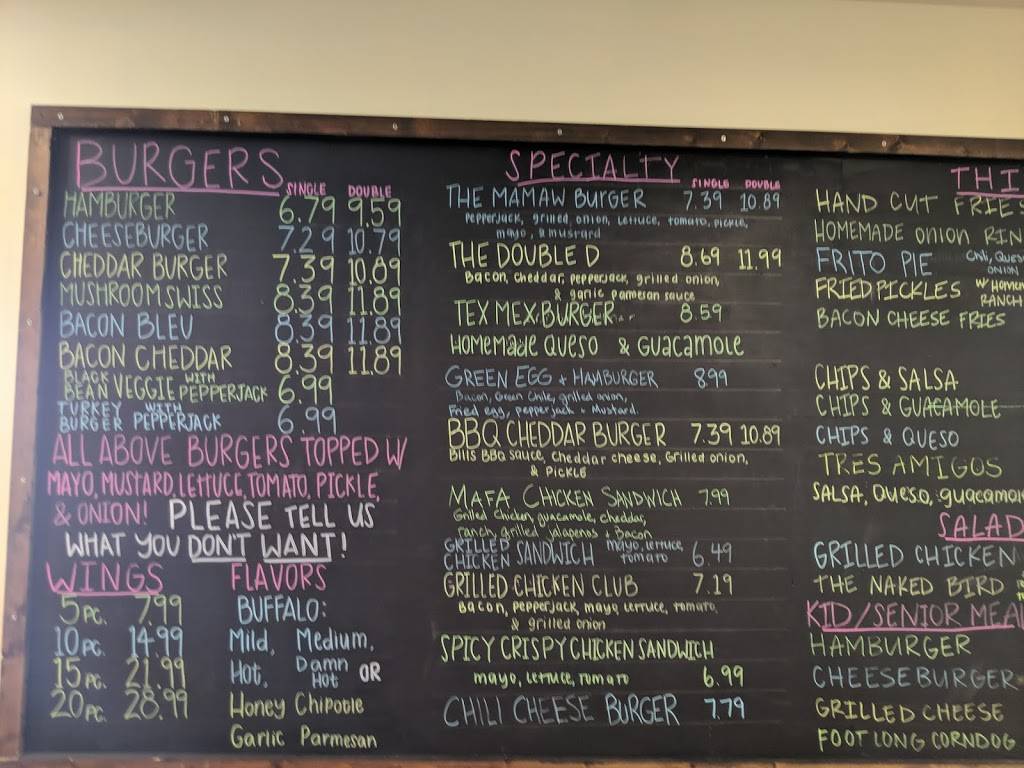 BURGERS
SINGLE DOUBLE
HAMBURGER 6.79 9.59
CHEESEBURGER 7.29 10.79
CHEDDAR BURGER 7.39 10.89
MUSHROOM SWISS 8.39 11.89
BACON BLEU 8.39 11.89
BACON CHEDDAR 8.39 11.89
BLACK BEAN VEGGIE WITH PEPPERJACK 6.99
TURKEY BURGER WITH PEPPERJACK 6.99
ALL ABOVE BURGERS TOPPED W
MAYO, MUSTARD, LETTUCE, TOMATO, PICKLE,
& ONION! PLEASE TELL US
WHAT YOU DON'T WANT!
WINGS
5 PC. 7.99
10 PC. 14.99
15 PC. 21.99
20 PC. 28.99
FLAVORS
BUFFALO:
Mild, Medium,
Hot, Damn Hot OR
Honey Chipotle
Garlic Parmesan
SPECIALTY
SINGLE DOUBLE
THE MAMAW BURGER 7.39 10.89
pepperjack, grilled, onion, lettuce, tomato, pickle,
mayo, & mustard
THE DOUBLE D 8.69 11.99
Bacon, cheddar, pepperjack, grilled onion,
& garlic parmesan sauce
TEX MEX BURGER.. 8.59
HOMEMADE QUESO & GUACAMOLE
GREEN EGG + HAMBURGER 899
Bacon, Green Chile, grilled onion,
Fried egg, pepperjack + Mustard
BBQ CHEDDAR BURGER 7.39 10.89
Bills BBQ sauce, cheddar cheese, Grilled onion,
& PICKLE
MAFA CHICKEN SANDWICH 7.99
Grilled Chicken, guacamole, cheddar,
ranch, grilled jalapenos + Bacon
GRILLED CHICKEN SANDWICH mayo, lettuce, tomato 6.49
GRILLED CHICKEN CLUB 7.19
Bacon, pepperjack, mayo, lettuce, tomato,
& grilled onion
SPICY CRISPY CHICKEN SANDWICH
mayo, lettuce, tomato 6.99
CHILI CHEESE BURGER 7.79
THI
HAND CUT FRIES
HOMEMADE ONION RIN
FRITO PIE Chili, Queso ONION
FRIED PICKLES W HOMEM RANCH
BACON CHEESE FRIES
CHIPS & SALSA
CHIPS & GUACAMOLE
CHIPS & QUESO
TRES AMIGOS
SALSA, Queso, guacamol
SALAD
GRILLED CHICKEN
THE NAKED BIRD
KID/SENIOR MEA
HAMBURGER
CHEESEBURGER
GRILLED CHEESE
FOOT LONG CORNDOG